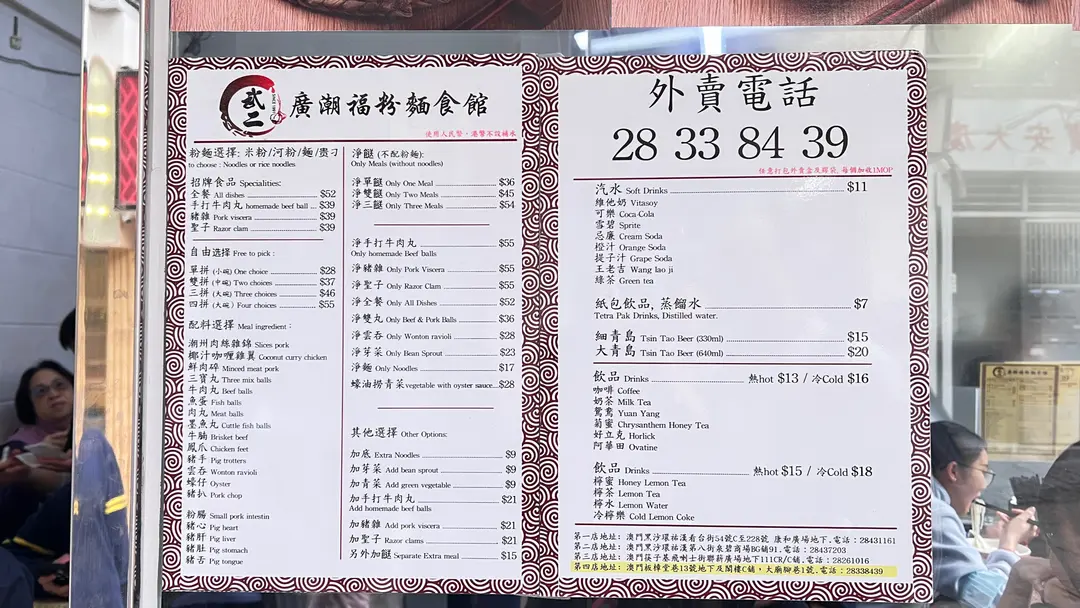 貳二
廣潮福粉麵食館
使用人民幣，港幣不設補水
粉麵選擇: 米粉/河粉/麵/贵刁
to choose : Noodles or rice noodles
招牌食品 Specialities:
全餐 All dishes $52
手打牛肉丸 homemade beef ball $39
豬雜 Pork viscera $39
聖子 Razor clam $39
自由选择 Free to pick :
單拼 (小碗) One choice $28
雙拼 (中碗) Two choices $37
三拼 (大碗) Three choices $46
四拼 (大碗) Four choices $55
配料選擇 Meal ingredient :
潮州肉絲雜錦 Slices pork
椰汁咖喱雞翼 Coconut curry chicken
鮮肉碎 Minced meat pork
三寶丸 Three mix balls
牛肉丸 Beef balls
魚蛋 Fish balls
肉丸 Meat balls
墨魚丸 Cuttle fish balls
牛腩 Brisket beef
鳳爪 Chicken feet
豬手 Pig trotters
雲吞 Wonton ravioli
蠔仔 Oyster
豬扒 Pork chop
粉腸 Small pork intestin
豬心 Pig heart
豬肝 Pig liver
豬肚 Pig stomach
豬舌 Pig tongue
淨餸 (不配粉麵):
Only Meals (without noodles)
淨單餸 Only One Meal $36
淨雙餸 Only Two Meals $45
淨三餸 Only Three Meals $54
淨手打牛肉丸 $55
Only homemade Beef balls
淨豬雜 Only Pork Viscera $55
淨聖子 Only Razor Clam $55
淨全餐 Only All Dishes $52
淨雙丸 Only Beef & Pork Balls $36
淨雲吞 Only Wonton ravioli $28
淨芽菜 Only Bean Sprout $23
淨麵 Only Noodles $17
蠔油撈青菜vegetable with oyster sauce...$28
其他選擇 Other Options:
加底 Extra Noodles $9
加芽菜 Add bean sprout $9
加青菜 Add green vegetable $9
加手打牛肉丸 $21
Add homemade beef balls
加豬雜 Add pork viscera $21
加聖子 Razor clams $21
另外加餸 Separate Extra meal $15
外賣電話
28 33 84 39
任意打包外賣盒及膠袋, 每個加收1MOP
汽水 Soft Drinks $11
維他奶 Vitasoy
可樂 Coca-Cola
雪碧 Sprite
忌廉 Cream Soda
橙汁 Orange Soda
提子汁 Grape Soda
王老吉 Wang lao ji
綠茶 Green tea
紙包飲品, 蒸餾水 $7
Tetra Pak Drinks, Distilled water.
細青島 Tsin Tao Beer (330ml) $15
大青島 Tsin Tao Beer (640ml) $20
飲品 Drinks 熱hot $13 / 冷Cold $16
咖啡 Coffee
奶茶 Milk Tea
鴛鴦 Yuan Yang
菊蜜 Chrysanthem Honey Tea
好立克 Horlick
阿華田 Ovatine
飲品 Drinks 熱hot $15 / 冷Cold $18
檸蜜 Honey Lemon Tea
檸茶 Lemon Tea
檸水 Lemon Water
冷檸樂 Cold Lemon Coke
第一店地址: 澳門黑沙環祐漢看台街54號C至228號 康和廣場地下. 電話 : 28431161
第二店地址: 澳門黑沙環祐漢第八街泉碧商場BG舖91. 電話 : 28437203
第三店地址: 澳門筷子基飛喇士街聯薪廣場地下111CR/C舖. 電話 : 28261016
第四店地址: 澳門板樟堂巷13號地下及閣樓C舖，大廟腳巷1號. 電話 : 28338439